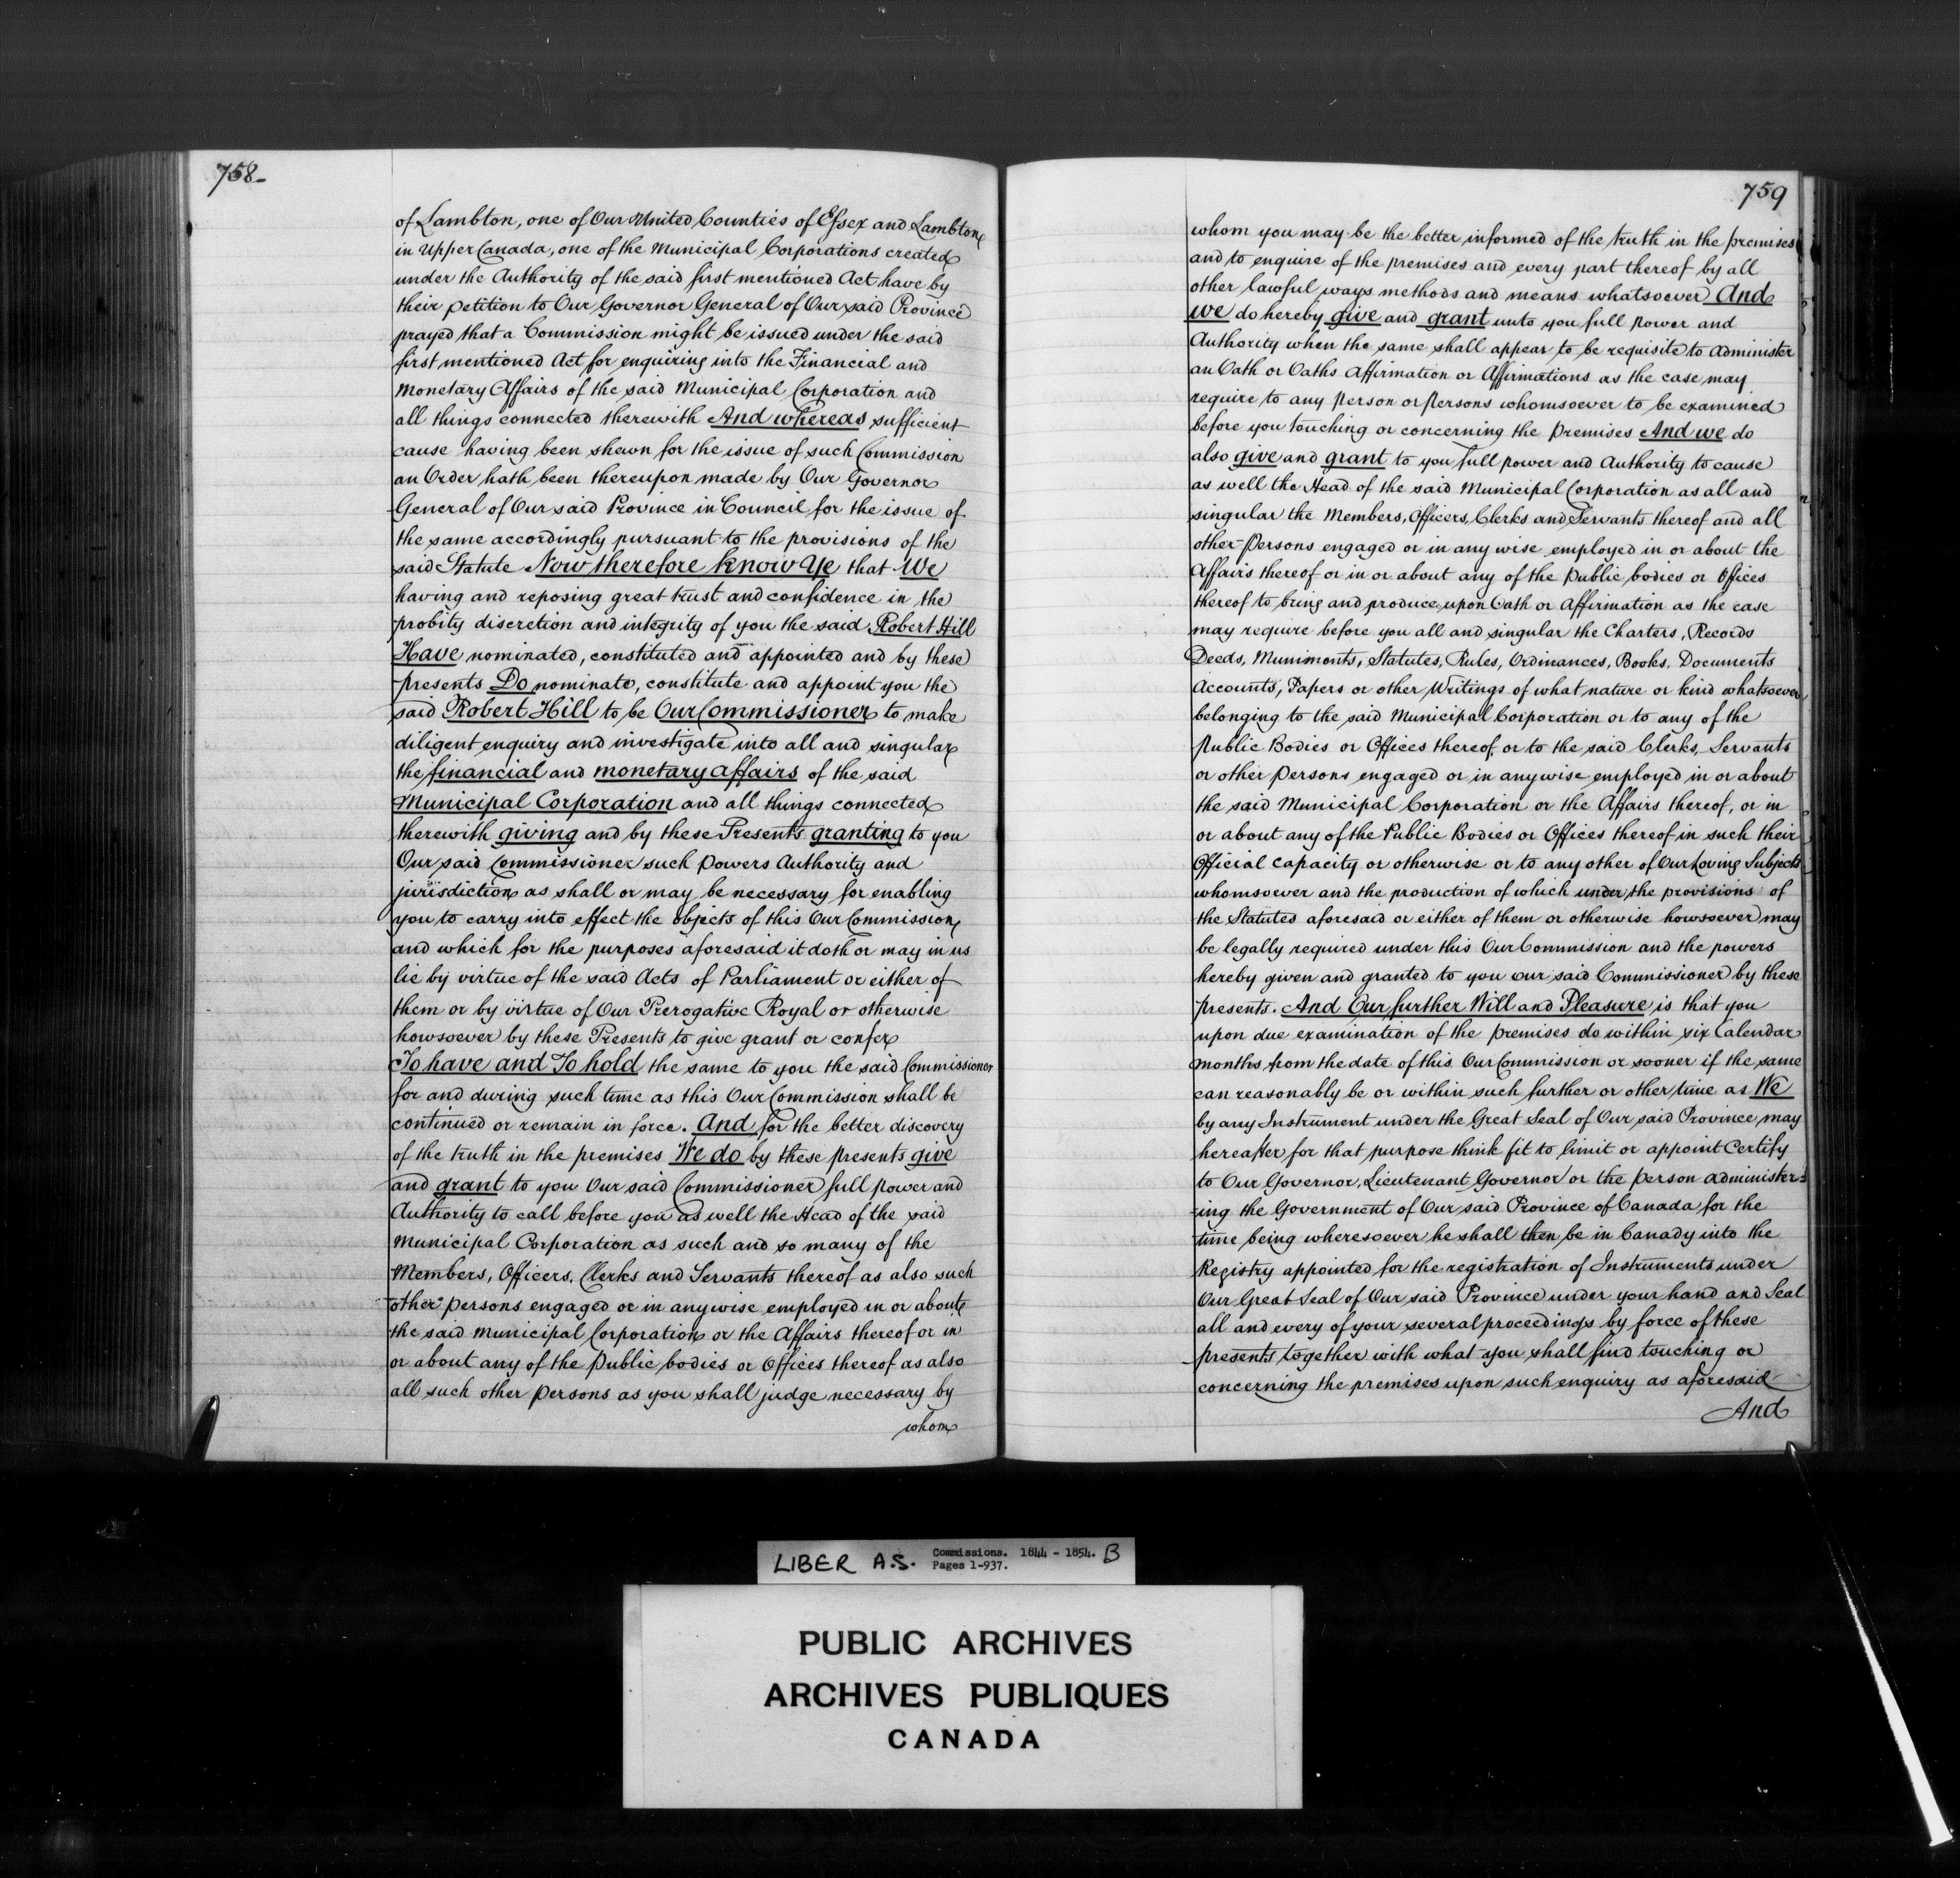 758-
of Lambton, one of Our United Counties of Essex and Lambton
in Upper Canada, one of the Municipal Corporations created
under the Authority of the said first mentioned Act have by
their petition to Our Governor General of Our said Province
prayed that a Commission might be issued under the said
first mentioned Act for enquiring into the Financial and
Monetary Affairs of the said Municipal Corporation and
all things connected therewith And whereas sufficient
cause having been shewn for the issue of such Commission
an Order hath been thereupon made by Our Governor
General of Our said Province in Council for the issue of
the same accordingly pursuant to the provisions of the
said Statute Now therefore know Ye that We
having and reposing great trust and confidence in the
probity discretion and integrity of you the said Robert Hill
Have nominated, constituted and appointed and by these
presents Do nominate, constitute and appoint you the
said Robert Hill to be Our Commissioner to make
diligent enquiry and investigate into all and singular
the financial and monetary affairs of the said
Municipal Corporation and all things connected
therewith giving and by these Presents granting to you
Our said Commissioner such Powers Authority and
jurisdiction as shall or may be necessary for enabling
you to carry into effect the objects of this Our Commission
and which for the purposes aforesaid it doth or may in us
lie by virtue of the said Acts of Parliament or either of
them or by virtue of Our Prerogative Royal or otherwise
howsoever by these Presents to give grant or confer
To have and To hold the same to you the said Commissioner
for and during such time as this Our Commission shall be
continued or remain in force. And for the better discovery
of the truth in the premises We do by these presents give
and grant to you Our said Commissioner full power and
Authority to call before you as well the Head of the said
Municipal Corporation as such and so many of the
Members, Officers, Clerks and Servants thereof as also such
other persons engaged or in anywise employed in or about
the said Municipal Corporation or the Affairs thereof or in
or about any of the Public bodies or Offices thereof as also
all such other persons as you shall judge necessary by
whom
759
whom you may be the better informed of the truth in the premises
and to enquire of the premises and every part thereof by all
other lawful ways methods and means whatsoever And
we do hereby give and grant unto you full power and
Authority when the same shall appear to be requisite to administer
an Oath or Oaths Affirmation or Affirmations as the case may
require to any Person or Persons whomsoever to be examined
before you touching or concerning the Premises And we do
also give and grant to you full power and Authority to cause
as well the Head of the said Municipal Corporation as all and
singular the Members, Officers, Clerks and Servants thereof and all
other Persons engaged or in any wise employed in or about the
Affairs thereof or in or about any of the Public bodies or Offices
thereof to bring and produce upon Oath or Affirmation as the case
may require before you all and singular the Charters, Records
Deeds, Muniments, Statutes, Rules, Ordinances, Books, Documents
Accounts, Papers or other Writings of what nature or kind whatsoever
belonging to the said Municipal Corporation or to any of the
Public Bodies or Offices thereof, or to the said Clerks, Servants
or other persons engaged or in anywise employed in or about
the said Municipal Corporation or the Affairs thereof, or in
or about any of the Public Bodies or Offices thereof in such their
Official capacity or otherwise or to any other of Our Loving Subjects
whomsoever and the production of which under the provisions of
the Statutes aforesaid or either of them or otherwise howsoever may
be legally required under this Our Commission and the powers
hereby given and granted to you our said Commissioner by these
presents. And Our further Will and Pleasure is that you
upon due examination of the premises do within six Calendar
months from the date of this Our Commission or sooner if the same
can reasonably be or within such further or other time as We
by any Instrument under the Great Seal of Our said Province may
hereafter for that purpose think fit to limit or appoint Certify
to Our Governor, Lieutenant Governor or the Person administer=
ing the Government of Our said Province of Canada for the
time being wheresoever he shall then be in Canady into the
Registry appointed for the registration of Instruments under
Our Great Seal of Our said Province under your hand and Seal
all and every of your several proceedings by force of these
presents together with what you shall find touching or
concerning the premises upon such enquiry as aforesaid
And
LIBER A.S. Commissions. 1844 - 1854. B
Pages 1-937.
PUBLIC ARCHIVES
ARCHIVES PUBLIQUES
CANADA